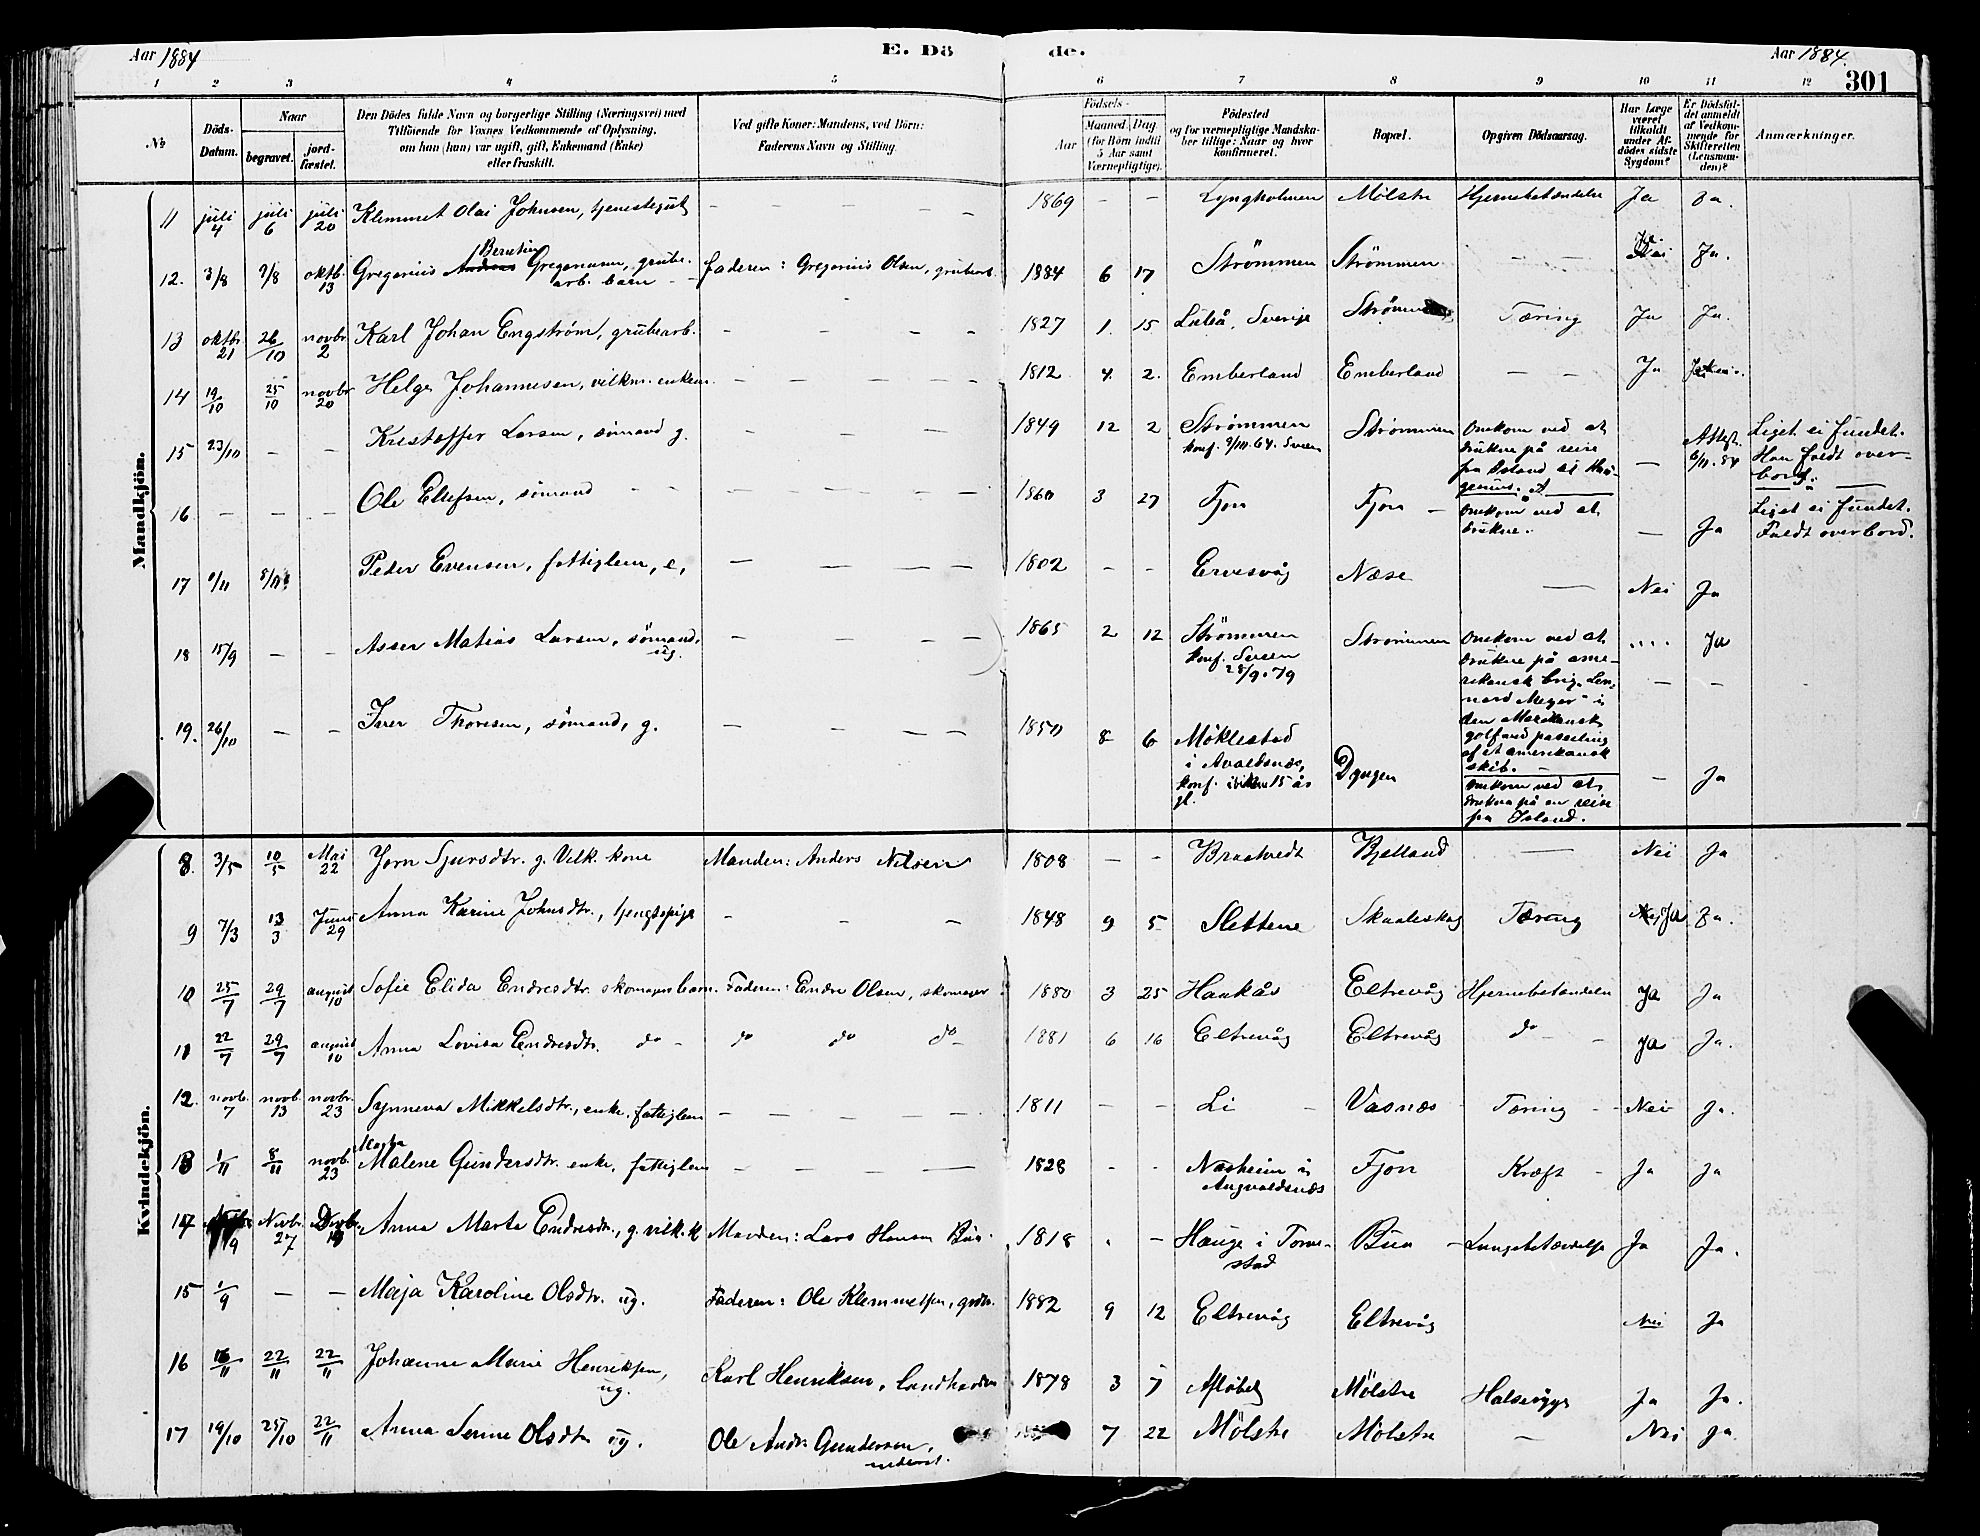 Aar 1884
E. Dö
de.
Aar 1884.
301
1 2 3 4 5 6 7 8 9 10 11 12
№
Döds-Datum.
Naar
begravet.
jordfæstet.
Den Dödes fulde Navn og borgerlige Stilling (Næringsvei) med
Tilföiende for Voxnes Vedkommende af Oplysning,
om han (hun) var ugift, gift, Enkemand (Enke)
eller fraskilt.
Ved gifte Koner: Mandens, ved Börn:
Faderens Navn og Stilling.
Födsels-
Aar
Maaned.
Dag
(for Börn indtil
5 Aar samt
Værnepligtige).
Födested
og for værnepligtige Mandska-
ber tillige: Naar og hvor
konfirmeret.
Bopæl.
Opgiven Dödsaarsag.
Har Læge
været
tilkaldt
under Af-
dödes sidste
Sygdom?
Er Dödsfal-
det anmeldt
af Vedkom-
mende for
Skifteretten
(Lensman-
den)?
Anmærkninger.
Mandkjön.
11 juli 4 juli 6 juli 20 Klemmet Olai Johnsen, tjenestegut - - - - 1869 - - Lyngholmen Mølstre Hjernebetændelse Ja Ja.
12. 3/8 9/8 oktb. 13 Gregorius Andreas Berntin Gregoriusen, grube-
arb. barn - Faderen: Gregorius Olsen, grubearb. 1884 6 17 Strömmen Strömmen - - Nei Ja. Ja.
13 oktbr 21 26/10 novbr 2 Karl Johan Engström, grubearb. - - - - 1827 1. 15 Luleå, Sverige Tæring Ja Ja.
14 19/10 25/10 novbr 20 Helge Johannesen, vilkm. enkem. - - - - - 1812 4. 2. Emberland Emberland - - Ja
15 23/10 - - Kristoffer Larsen, sömand g. - - - 1849 12 2 Strömmen
konf. Sveen
Strömmen
Omkom ved at
drukne på reise
fra Island
-
Attest. 6/11.84
Liget ei fundet.
Han faldt over-
bord.
16 - - - Ole Elefsen, sömand - - - - - - 1860 3 27 Fjon Fjon -
Omkom ved at
drukne.
- Ja
Liget ei fundet.
Faldt overbord.
17 1/11 8/11 Peder Evensen, fattiglem, e, - - - - 1802 - - Ervesvåg Næse — Nei Ja
18 15/9 - - Asser Matias Larsen, sömand,
ug. - - - - 1865 2 12 Strömmen
konf. Sveen
28/9.79
Strömmen
Omkom ved at
drukne på ame-
rikansk brig "Len-
nard Meyer" i
den Mexikansk
golf
af et amerikansk
skib. -
.... Ja
19. 26/10 - - Iver Thoresen, sömand, g. - - - - 1850 8 6 Møklestad
i Avaldsnæs,
konf.
gl.
Omkom ved at
drukne på en reise
fra Island.
- Ja
Kvindekjön.
8. 3/5 10/5 Mai 22 Jorn Sjursdtr. g. Vilk. kone Manden: Anders Nilsen 1808 - - Braatvedt Bjelland — Nei Ja
9 7/3 13/3 Juni 29 Anna Karine Johnsdtr., - - - 1848 9 5 Slettene Skaaleskog Tæring Nei Ja Ja.
10 25/7 29/7 august 10 Sofie Elida Endresdtr. skomagerbarn. Faderen: Endre Olsen, skomager 1880 3 25 Haakås Eltrevåg Hjernebetændelse Ja Ja
11 22/7 29/7 august 10 Anna Lovisa Endresdtr. do - do do do - 1881 6 16 Eltrevåg Eltrevåg do - - Ja Ja.
12. novb. 7 novb. 13 novbr. 23 Synneva Mikkelsdtr., enke, fattiglem - - - - - 1811 - - Li - Vasnæs - Tæring - - Nei Ja.
13 1/11 8/11 novb. 23 Marta
Malene Gundersdtr. enke, fattiglem - - - - 1828 - - Næsheim i
Augvaldsnæs Fjon Kræft - Ja Ja
14 19 Novbr. 27 Anna Marta Endresdtr., g. vilk. k Manden: Lars Hansen Bua. 1818 - - Hauge i Torve-
stad Bua - Lungebetændelse Ja Ja.
15 1/9 - - Maja Karoline Olsdtr. ug. Faderen: Ole Klemmetsen, 1882 9 12 Eltrevåg Eltrevåg Nei Ja
16 16/11 22/11 22/11 Johanne Marie Henriksen,
ug. Karl Henriksen, landhandler 1878 3 7 Mölstre Ja Ja.
17 19/10 25/10 22/11 Anna Serine Olsdtr. ug. Ole Andr. Gundersen, 7 22 Mölstre Mölstre - Nei Ja.